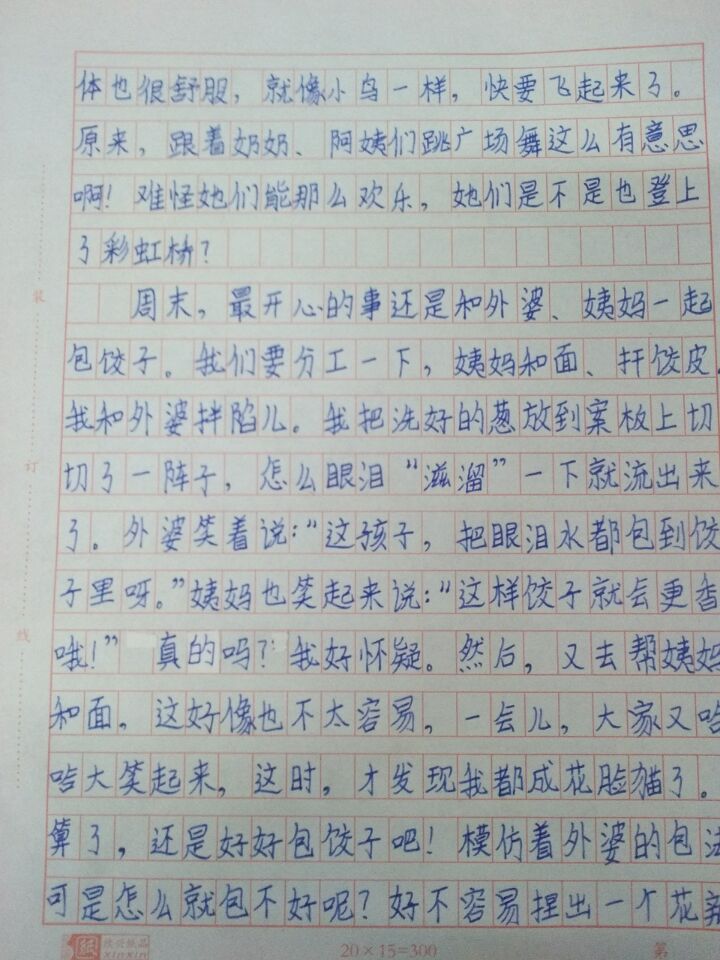 体也很舒服，就像小鸟一样，快要飞起来了。
原来，跟着奶奶、阿姨们跳广场舞这么有意思
啊！难怪她们能那么欢乐，她们是不是也登上
了彩虹桥？
周末，最开心的事还是和外婆、姨妈一起
包饺子。我们要分工一下，姨妈和面、扞饺皮，
我和外婆拌陷儿。我把洗好的葱放到案板上切
切了一阵子，怎么眼泪“滋溜”一下就流出来
了。外婆笑着说：“这孩子，把眼泪水都包到饺
子里呀。”姨妈也笑起来说：“这样饺子就会更香
哦！” 真的吗？我好怀疑。然后，又去帮姨妈
和面。这好像也不太容易，一会儿，大家又哈
哈大笑起来，这时，才发现我都成花脸猫了。
算了，还是好好包饺子吧！模仿着外婆的包法
可是怎么就包不好呢？好不容易捏出一个花
装
订
线
纸 欣兴纸品
xinxin
20×15=300
第